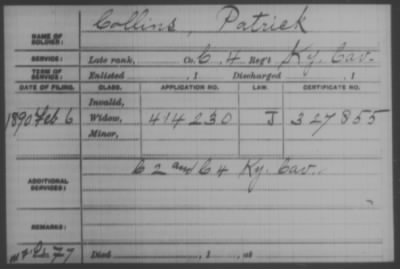 Collins, Patrick
NAME OF SOLDIER:
SERVICE: Late rank, Co. C, 4 Reg't Ky. Cav.
TERM OF SERVICE: Enlisted , 1 Discharged , 1
DATE OF FILING. CLASS. APPLICATION NO. LAW. CERTIFICATE NO.
Invalid,
1890 Feb 6 Widow, 414230 J 327855
Minor,
C 2 and C 4 Ky. Cav.
ADDITIONAL SERVICES:
REMARKS:
Died , 1 , at